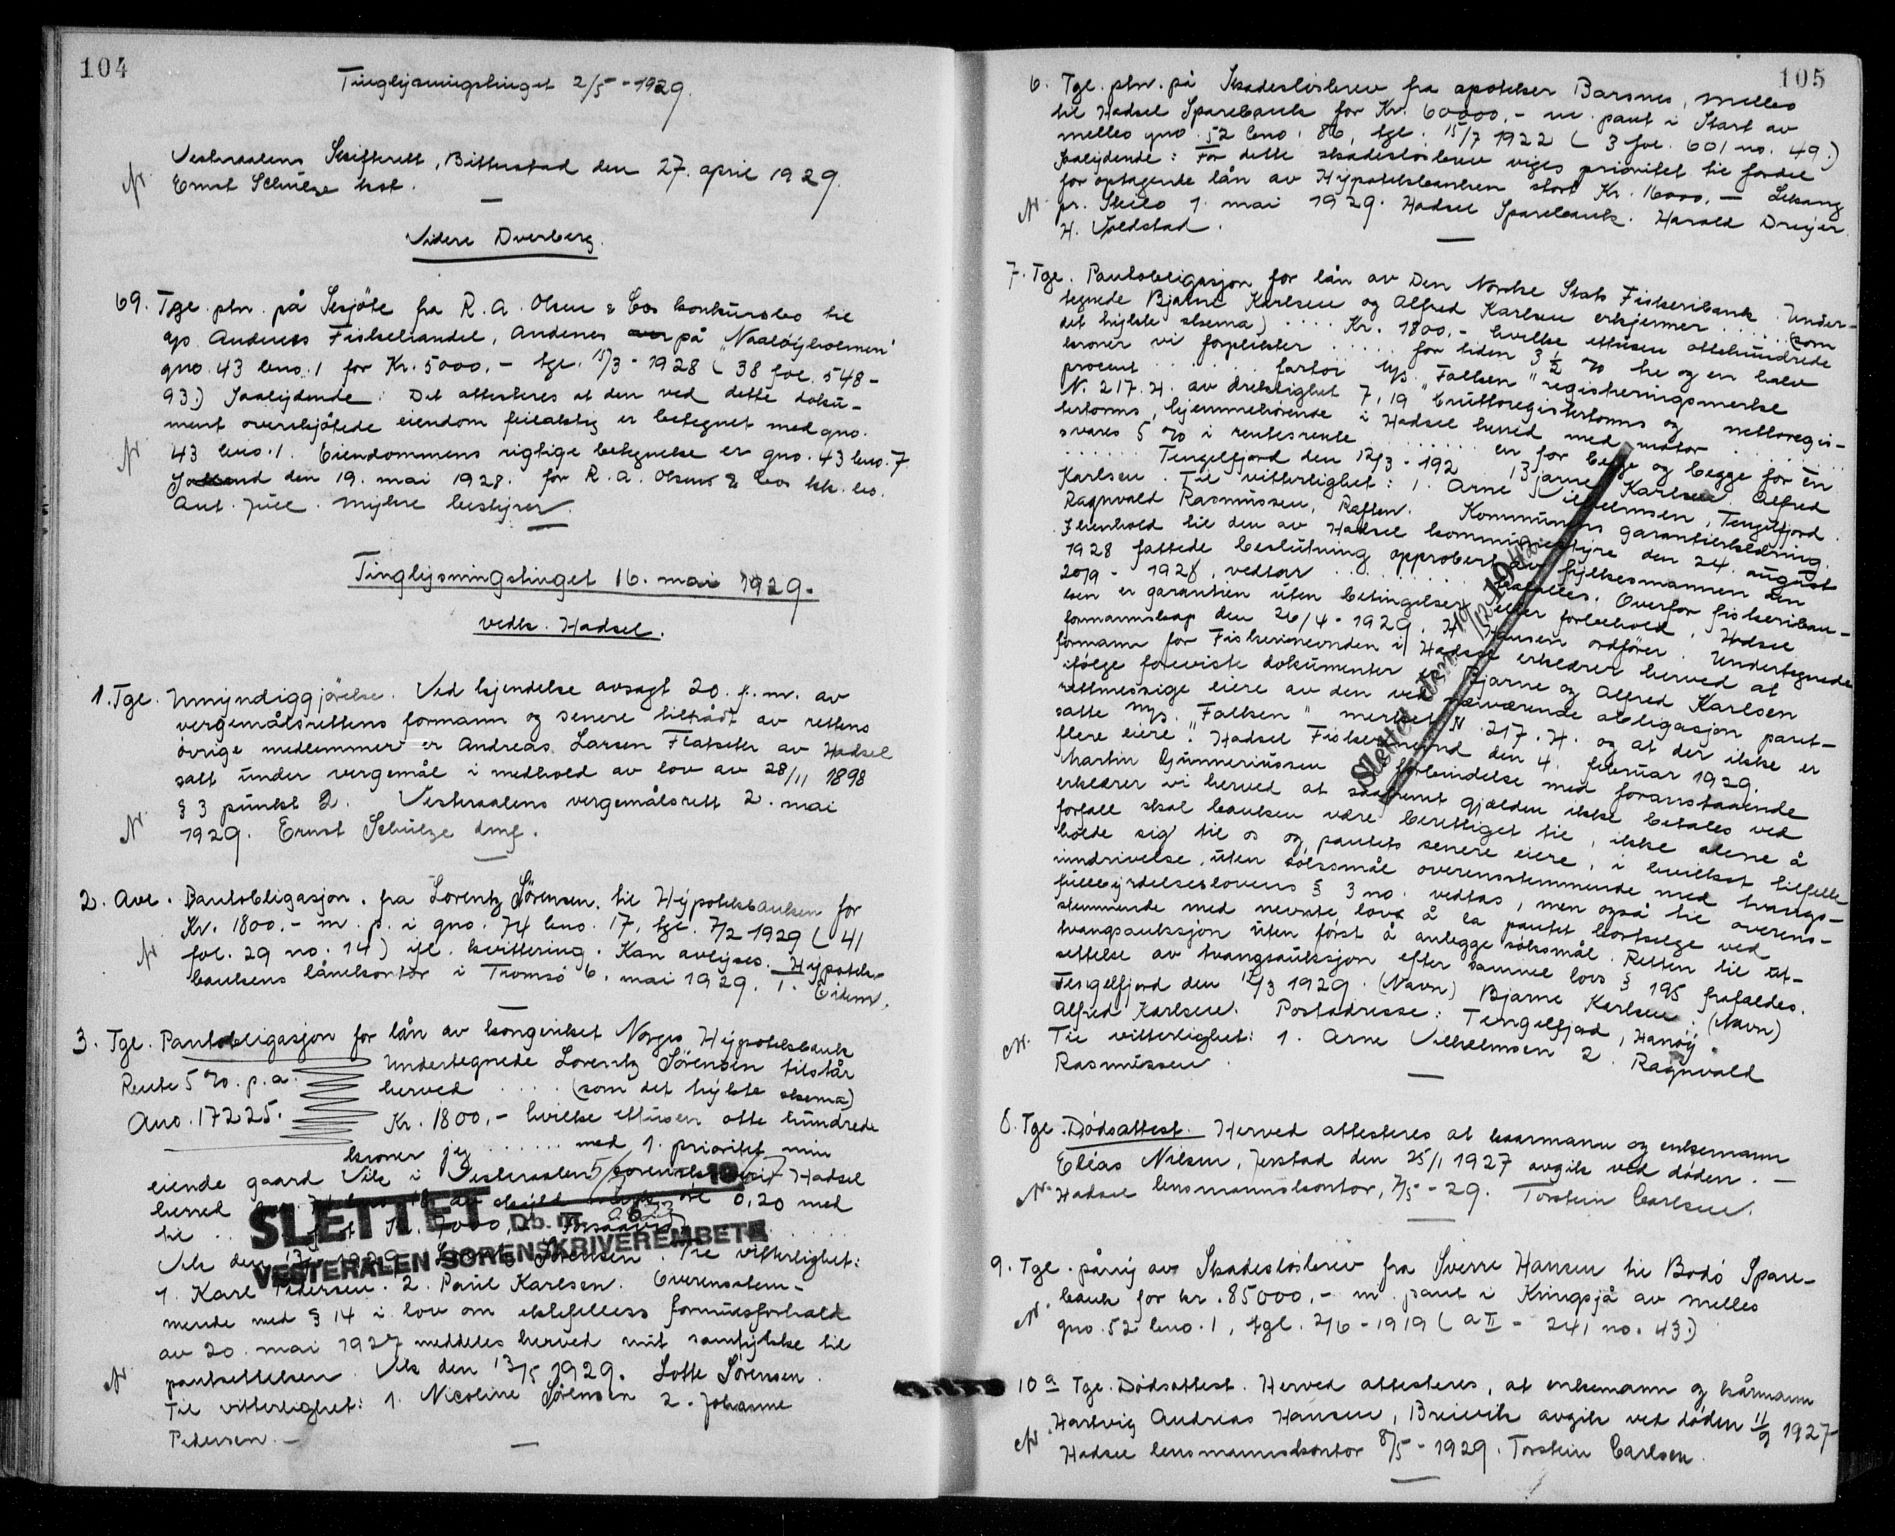 104
Tinglysningstinget 2/5-1929.
Vesteraalens Skifterett, Bitterstad den 27. april 1929
Ernst Schulze kst.
Videre Dverberg.
69. Tgl. ptn. på Skjöte fra R. A. Olsen & Cos konkursbo til
Andenes Fiskehandel, Andenes på "Naalöyholmen"
gno. 43 bno. 1 for Kr. 5000.- tgl. 15/3-1928 (38 fol. 548-
93.) Saalydende: Det attesteres at den ved dette doku-
ment overskjötede eiendom feilaktig er betegnet med gno.
43 bno. 1. Eiendommens rigtige betegnelse er gno. 43 bno. 7
den 19. mai 1928. for R. A. Olsens & Cos kk. bo.
Ant. Juel. midlere bestyrer.
Tinglysningstinget 16. mai 1929.
vedk. Hadsel.
1. Tgl. Umyndiggjörelse. Ved kjendelse avsagt 20. f.m. av
vergemålsrettens formann og senere tiltrådt av rettens
övrige medlemmer er Andreas Larsen Flatset av Hadsel
satt under vergemål i medhold av lov av 28/11 1898
§ 3 punkt 2. Vesteraalens vergemålsrett 2. mai
1929. Ernst Schulze dmf.
2. Avl. Pantobligasjon fra Lorentz Sörensen til Hypotekbanken for
Kr. 1800.- m. p. i gno. 74 bno. 17, tgl. 7/2 1929 (41
fol. 29 no. 14) ifl. kvittering. Kan avlyses. Hypotek-
bankens lånekontor i Tromsö 6. mai 1929. I. Eidem.
3. Tgl. Pantobligasjon for lån av kongeriket Norges Hypotekbank
Rente 5 % p.a. Undertegnede Lorentz Sörensen tilstår
herved .... (som det trykte skema)
Ano. 17225. Kr. 1800,- hvilke ettusen otte hundrede
kroner jeg ...... med 1. prioritet min
eiende gaard Vik i Vesteraalen Hadsel
herred 0,20 med
til ..
SLETTET 5/7 19
Db. nr.
VESTERÅLEN SORENSKRIVEREMBETE
Vik den 1929. Lorentz Sörensen. Til vitterlighet:
1. Karl Pedersen. 2. Paul Karlsen. Overensstem-
mende med § 14 i lov om ektefellers formuesforhold
av 20. mai 1927 meddeles herved mit samtykke til
pantsettelsen. Vik den 13/5 1929. Lotte Sörensen.
Til vitterlighet: 1. Nicoline Sörensen 2. Johanne
Pedersen.
105
6. Tgl. ptn. på Skadeslösbrev fra apoteker Barsnes, Melbo
til Hadsel Sparebank for Kr. 60000.- m. pant i Start av
melbo gno. 52 bno. 86, tgl. 15/7 1922 (3 fol. 601 no. 49.)
Saalydende: For dette skadeslösbrev viges prioritet til fordel
for optagende lån av Hypotekbanken stort Kr. 16000.-
pr. Melbo 1. mai 1929. Hadsel Sparebank. Harald Dreyer
H. Voldstad.
7. Tgl. Pantobligasjon for lån av Den Norske Stats Fiskeribank. Under-
tegnede Bjarne Karlsen og Alfred Karlsen erkjenner .... (som
det trykte skema) .... Kr. 1800.- hvilke ettusen ottehundrede
kroner vi forplikter .... for tiden 3 1/2 % tre og en halv
procent ...... fartöi M/s. "Falken" registreringsmerke
N. 217. H. av drektighet 7,19 bruttoregistertonns og nettoregis-
tertonns, hjemmehörende i Hadsel herred med motor ....
svares 5 % i rentesrente ...... en for begge og begge for en
...... Tengelfjord den 12/3-192 Bjarne Karlsen Alfred
Karlsen. Til vitterlighet: 1. Arne Vilhelmsen, Tengelfjord
Ragnvald Rasmussen, Raften. Kommunens garantierklæring.
I henhold til den av Hadsel kommunestyre den 24. august
1928 fattede beslutning approbert av fylkesmannen den
20/9 - 1928, vedtar ........ frafalles. Overfor fiskeriban-
ken er garantien uten betingelser eller forbehold. Hadsel
formannskap den 26/4-1929. H. Hansen ordförer. Undertegnede
formann for Fiskerinevnden i Hadsel erklærer herved at
ifölge foreviste dokumenter er Bjarne og Alfred Karlsen
rettmessige eiere av den ved nærværende obligasjon pant-
satte M/s. "Falken" merket N. 217. H. og at der ikke er
flere eiere. Hadsel Fiskerinevnd den 4. februar 1929.
Martin Gunneriussen. I forbindelse med foranstaaende
erklærer vi herved at saafremt gjælden ikke betales ved
forfall skal banken være berettiget til, ikke alene å
holde sig til os og pantets senere eiere, i hvilket tilfelle
inndrivelse uten söksmål overensstemmende med tvangs-
fullbyrdelseslovens § 3 no. vedtas, men også til overens-
stemmende med nevnte lov å la pantet bortselge ved
tvangsauksjon uten först å anlegge söksmål. Retten til ut-
settelse av tvangsauksjon efter samme lovs § 195 frafaldes.
Tengelfjord den 12/3 1929. (Navn) Bjarne Karlsen. (Navn)
Alfred Karlsen. Postadresse: Tengelfjord, Hanöy
Til vitterlighet: 1. Arne Vilhelmsen 2. Ragnvald
Rasmussen.
Slettet den 10/12 1942
8. Tgl. Dödsattest. Herved attesteres at kaarmann og enkemann
Elias Nilsen, Jerstad den 25/1 1927 avgik ved döden. —
Hadsel lensmannskontor, 7/5-29. Torstein Carlsen.
9. Tgl. påny av Skadeslösbrev fra Sverre Hansen til Bodö Spare-
bank for kr. 85000,- m. pant i Kringsjå av melbo
gno. 52 bno. 1, tgl. 2/6-1919 (a II - 241 no. 43.)
10 a Tgl. Dödsattest. Herved attesteres, at enkemann og kårmann
Hartvig Andreas Hansen, Breivik avgik ved döden 11/9 1927
Hadsel lensmannskontor 8/5-1929. Torstein Carlsen.